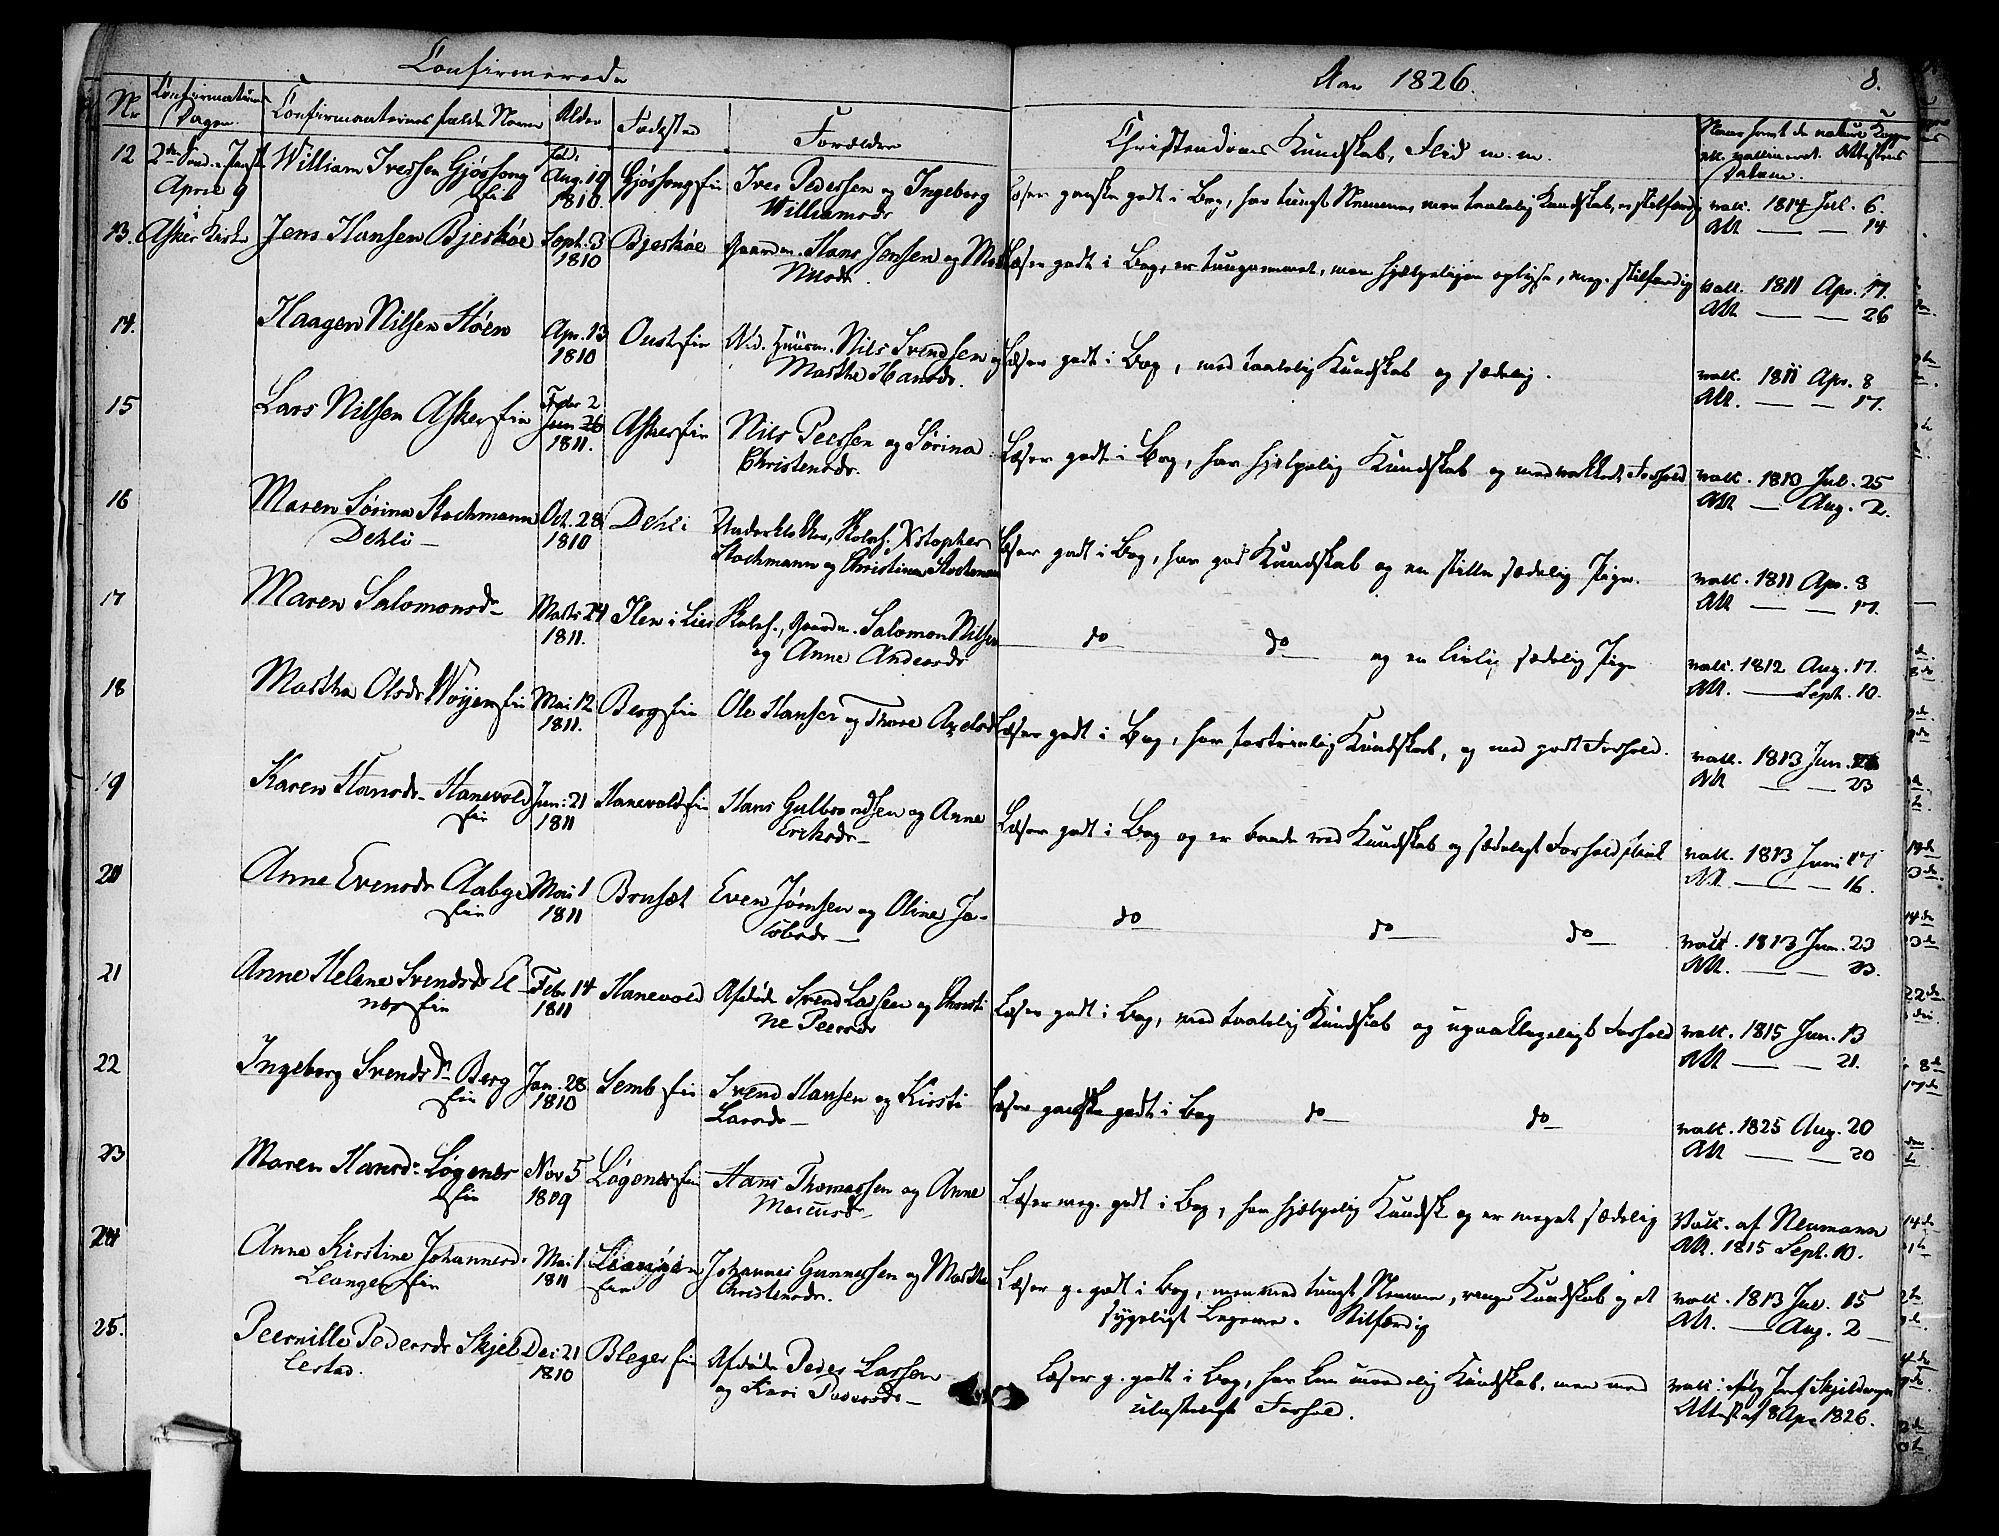 Confirmerede
Aar 1826.
8.
No
Confirmations Dagen.
Confirmanternes fulde Navne
Alder
Fødested
Forældre
Christendoms Kundskab, Flid m. m.
Naar samt de naturl. Kopper
ell. vaccineret. Attestens
Datum.
12
2den Sønd. e. Paaske
April 9
William Iversen Gjøssong
eie
fød.
Aug. 19
1810.
Gjøssong eie
Iver Pedersen og Ingeborg
Williamsdr
Læser ganske godt i Bog, har tungt Nemme, men taalelig Kundskab, er skikkelig
vacc. 1814 Jul. 6.
Att — — 14
13.
i Asker Kirke
Jens Hansen Bjerkøe
Sept. 3
1810
Bjerkøe
Gaardm. Hans Jensen og
Nilsdr.
Læser godt i Bog, er tungnemmet, men hjelpeligen oplyst, meg. stilfærdig
vacc. 1811 Apr. 17.
Att — — 26
14.
Haagen Nilsen Støen
Apr. 13
1810
Oust eie
Huusm. Nils Svendsen og
Marthe Hansdr.
Læser godt i Bog, med taalelig Kundskab og sædelig.
vacc. 1811 Apr. 8
Att. — — 17.
15
Lars Nilsen Asker eie
Febr 2
Jan 26
1811.
Asker eie
Nils Peersen og Sørina
Christensdr.
Læser godt i Bog, har hjelpelig Kundskab og med vakkert Forhold
vacc. 1810 Jul. 25
Att — Aug. 2.
16
Maren Sørina Stochmann
Dehli —
Oct. 28
1810
Dehli
Xstopher
Stochmann og Christina Stochmann
Læser godt i Bog, har god Kundskab og en stille sædelig Pige.
vacc. 1811 Apr. 8
Att — — 17.
17
Maren Salomonsdr
Marts 24
1811.
Ilen i Lier
Gaardm. Salomon Nilsen
og Anne Andersdr
do do og en livlig sædelig Pige
vacc. 1812 Aug. 17.
Att. — Sept. 10.
18
Marthe Olsdr Wøyen eie
Mai 12
1811.
Berg eie
Ole Hansen og Thore Axelsdr
Læser godt i Bog, har fortrinlig Kundskab, og med godt Forhold.
vacc. 1813 Jun.
Att — — 23
19
Karen Hansdr Hanevold
eie
Jun: 21
1811
Hanevold eie
Hans Gulbrandsen og Anne
Eriksdr —
Læser godt i Bog og er baade med Kundskab og sædeligt Forhold flink
vacc. 1813 Juni 17
Att — — 16.
20
Anne Evensdr Aabye
eie
Mai 1
1811
Brusæt
Even Jørnsen og Oline Ja-
cobsdr —
do do do
vacc. 1813 Jun. 23
Att. — — 23.
21
Anne Helene Svendsdr El-
nes eie
Feb. 14
1811
Hanevold
Afdøde Svend Larsen og Kirsti-
ne Peersdr
Læser godt i Bog, med taalelig Kundskab og upaaklageligt Forhold
vacc. 1815 Jun. 13
Att — — 21.
22
Ingeborg Svendsdr Berg
eie
Jan. 28
1810
Semb eie
Svend Hansen og Kirsti
Larsdr —
Læser ganske godt i Bog do do
vacc. 1825 Aug. 20
Att — — 20
23
Maren Hansdr Løgenes
eie
Nov 5
1809
Løgenes eie
Hans Thomassen og Anne
Marcusdr
Læser meg. godt i Bog, har hjelpelig Kundsk og er meget sædelig
Vacc. af Neumann
Att. 1815 Sept. 10.
24
Anne Kirstine Johannesdr
Leangen eie
Mai 1.
1811
eie
Johannes Gunnersen og Marthe
Christensdr.
Læser g. godt i Bog, men med tungt Nemme, ringe Kundskab og et
sygeligt Legeme. Stilfærdig
vacc. 1813 Jul. 15
Att. — Aug. 2 —
25.
Peernille Pedersdr Skjel-
lestad.
Dec: 21
1810
Bleger eie
Afdøde Peder Larsen
og Kari Pedersdr —
Læser g. godt i Bog, har kun maadelig Kundskab, men med
ulasteligt Forhold.
vacc: ifølg
Attest af 8 Apr 1826.